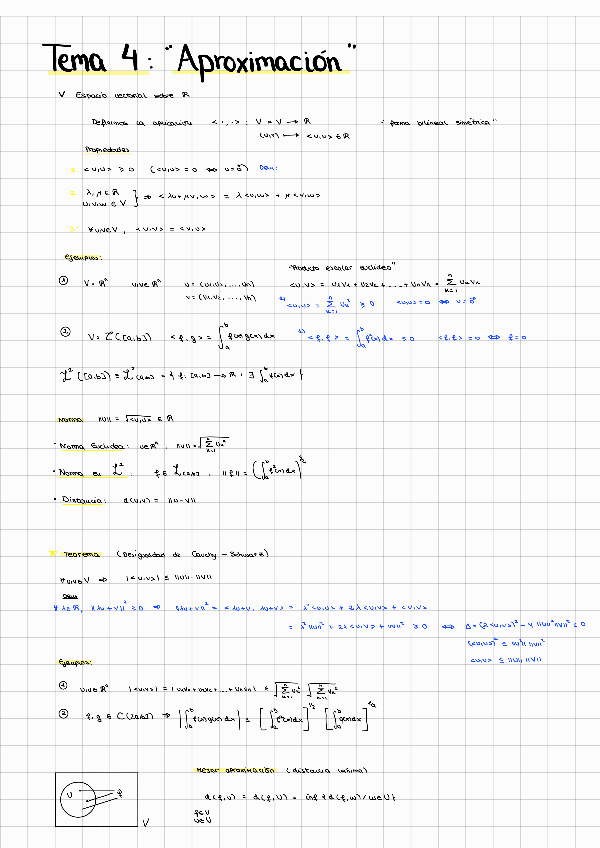 Tema 4: "Aproximación"
V Espacio vectorial sobre ℝ
Definimos la aplicación <·,·>: V × V → ℝ "forma bilineal simétrica"
(u,v) ⟼ <u,v> ∈ ℝ
Propiedades
1. <u,u> ≥ 0 (<u,u> = 0 ⇔ u = 0⃗) Dem:
2. λ, μ ∈ ℝ
u,v,w ∈ V } ⇒ <λu + μv, w> = λ<u,w> + μ<v,w>
3. ∀u,v ∈ V, <u,v> = <v,u>
Ejemplos:
① V = ℝⁿ u,v ∈ ℝⁿ u = (u₁, u₂, ..., uₙ) "Producto escalar euclídeo" <u,v> = u₁v₁ + u₂v₂ + ... + uₙvₙ = ∑ₖ₌₁ⁿ uₖvₖ
v = (v₁, v₂, ..., vₙ) 1) <u,u> = ∑ₖ₌₁ⁿ uₖ² ≥ 0 <u,u> = 0 ⇔ u = 0⃗
② V = C([a,b]) <f,g> = ∫ₐᵇ f(x)g(x)dx 1) <f,f> = ∫ₐᵇ f²(x)dx ≥ 0 <f,f> = 0 ⇔ f = 0
L²([a,b]) = L²[a,b] = { f: [a,b] → ℝ : ∃ ∫ₐᵇ f(x)dx }
Norma ||u|| = √<u,u> ∈ ℝ
· Norma Euclídea: u ∈ ℝⁿ, ||u|| = √∑ₖ₌₁ⁿ uₖ²
· Norma en L²: f ∈ L²[a,b], ||f|| = (∫ₐᵇ f²(x)dx)^1/2
· Distancia: d(u,v) = ||u - v||
Teorema (Desigualdad de Cauchy - Schwarz)
∀u,v ∈ V ⇒ |<u,v>| ≤ ||u||·||v||
Dem
∀λ ∈ ℝ, ||λu + v||² ≥ 0 ⇒ ||λu + v||² = <λu + v, λu + v> = λ²<u,u> + 2λ<u,v> + <v,v>
= λ²||u||² + 2λ<u,v> + ||v||² ≥ 0 ⇔ Δ = (2<u,v>)² - 4||u||²||v||² ≤ 0
(<u,v>)² ≤ ||u||²||v||²
<u,v> ≤ ||u|| ||v||
Ejemplos:
① u,v ∈ ℝⁿ |<u,v>| = |u₁v₁ + u₂v₂ + ... + uₙvₙ| ≤ √∑ₖ₌₁ⁿ uₖ² √∑ₖ₌₁ⁿ vₖ²
② f, g ∈ C([a,b]) ⇒ |∫ₐᵇ f(x)g(x)dx| ≤ [∫ₐᵇ f²(x)dx]^1/2 [∫ₐᵇ g(x)dx]^1/2
Mejor aproximación (distancia mínima)
d(f,u) = d(f,U) = inf { d(f,w) / w ∈ U }
f ∈ V
u ∈ U
U f
V